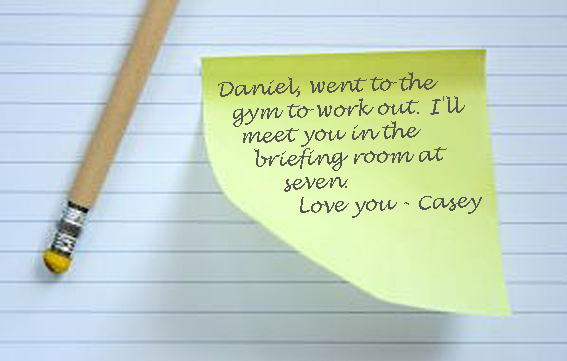 Daniel, went to the
gym to work out. I'll
meet you in the
briefing room at
seven.
Love you - Casey